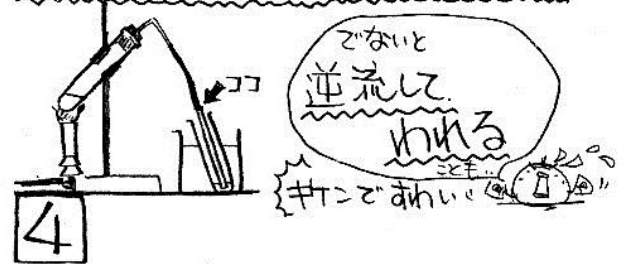 ココ
でないと
逆流して
われる
ことも…
キケンですわい
4